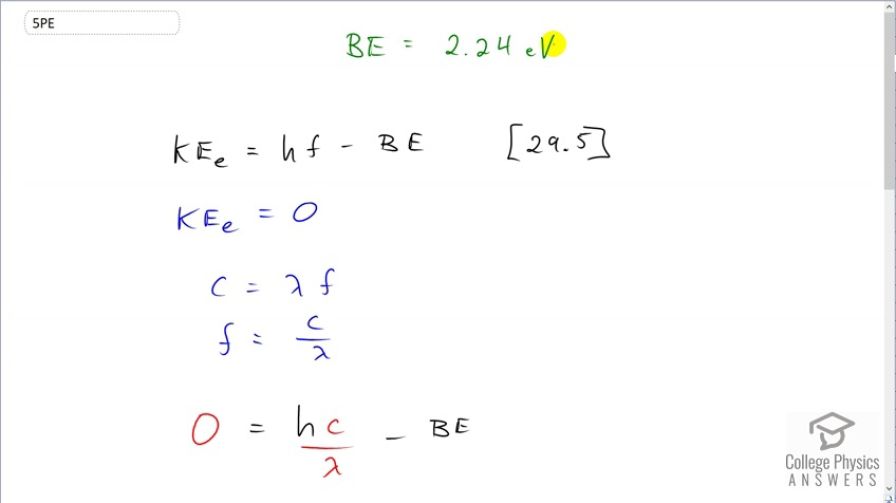 5PE
BE = 2.24 eV
KEₑ = hf - BE [29.5]
KEₑ = 0
c = λ f
f = c/λ
0 = hc/λ - BE
College Physics
ANSWERS